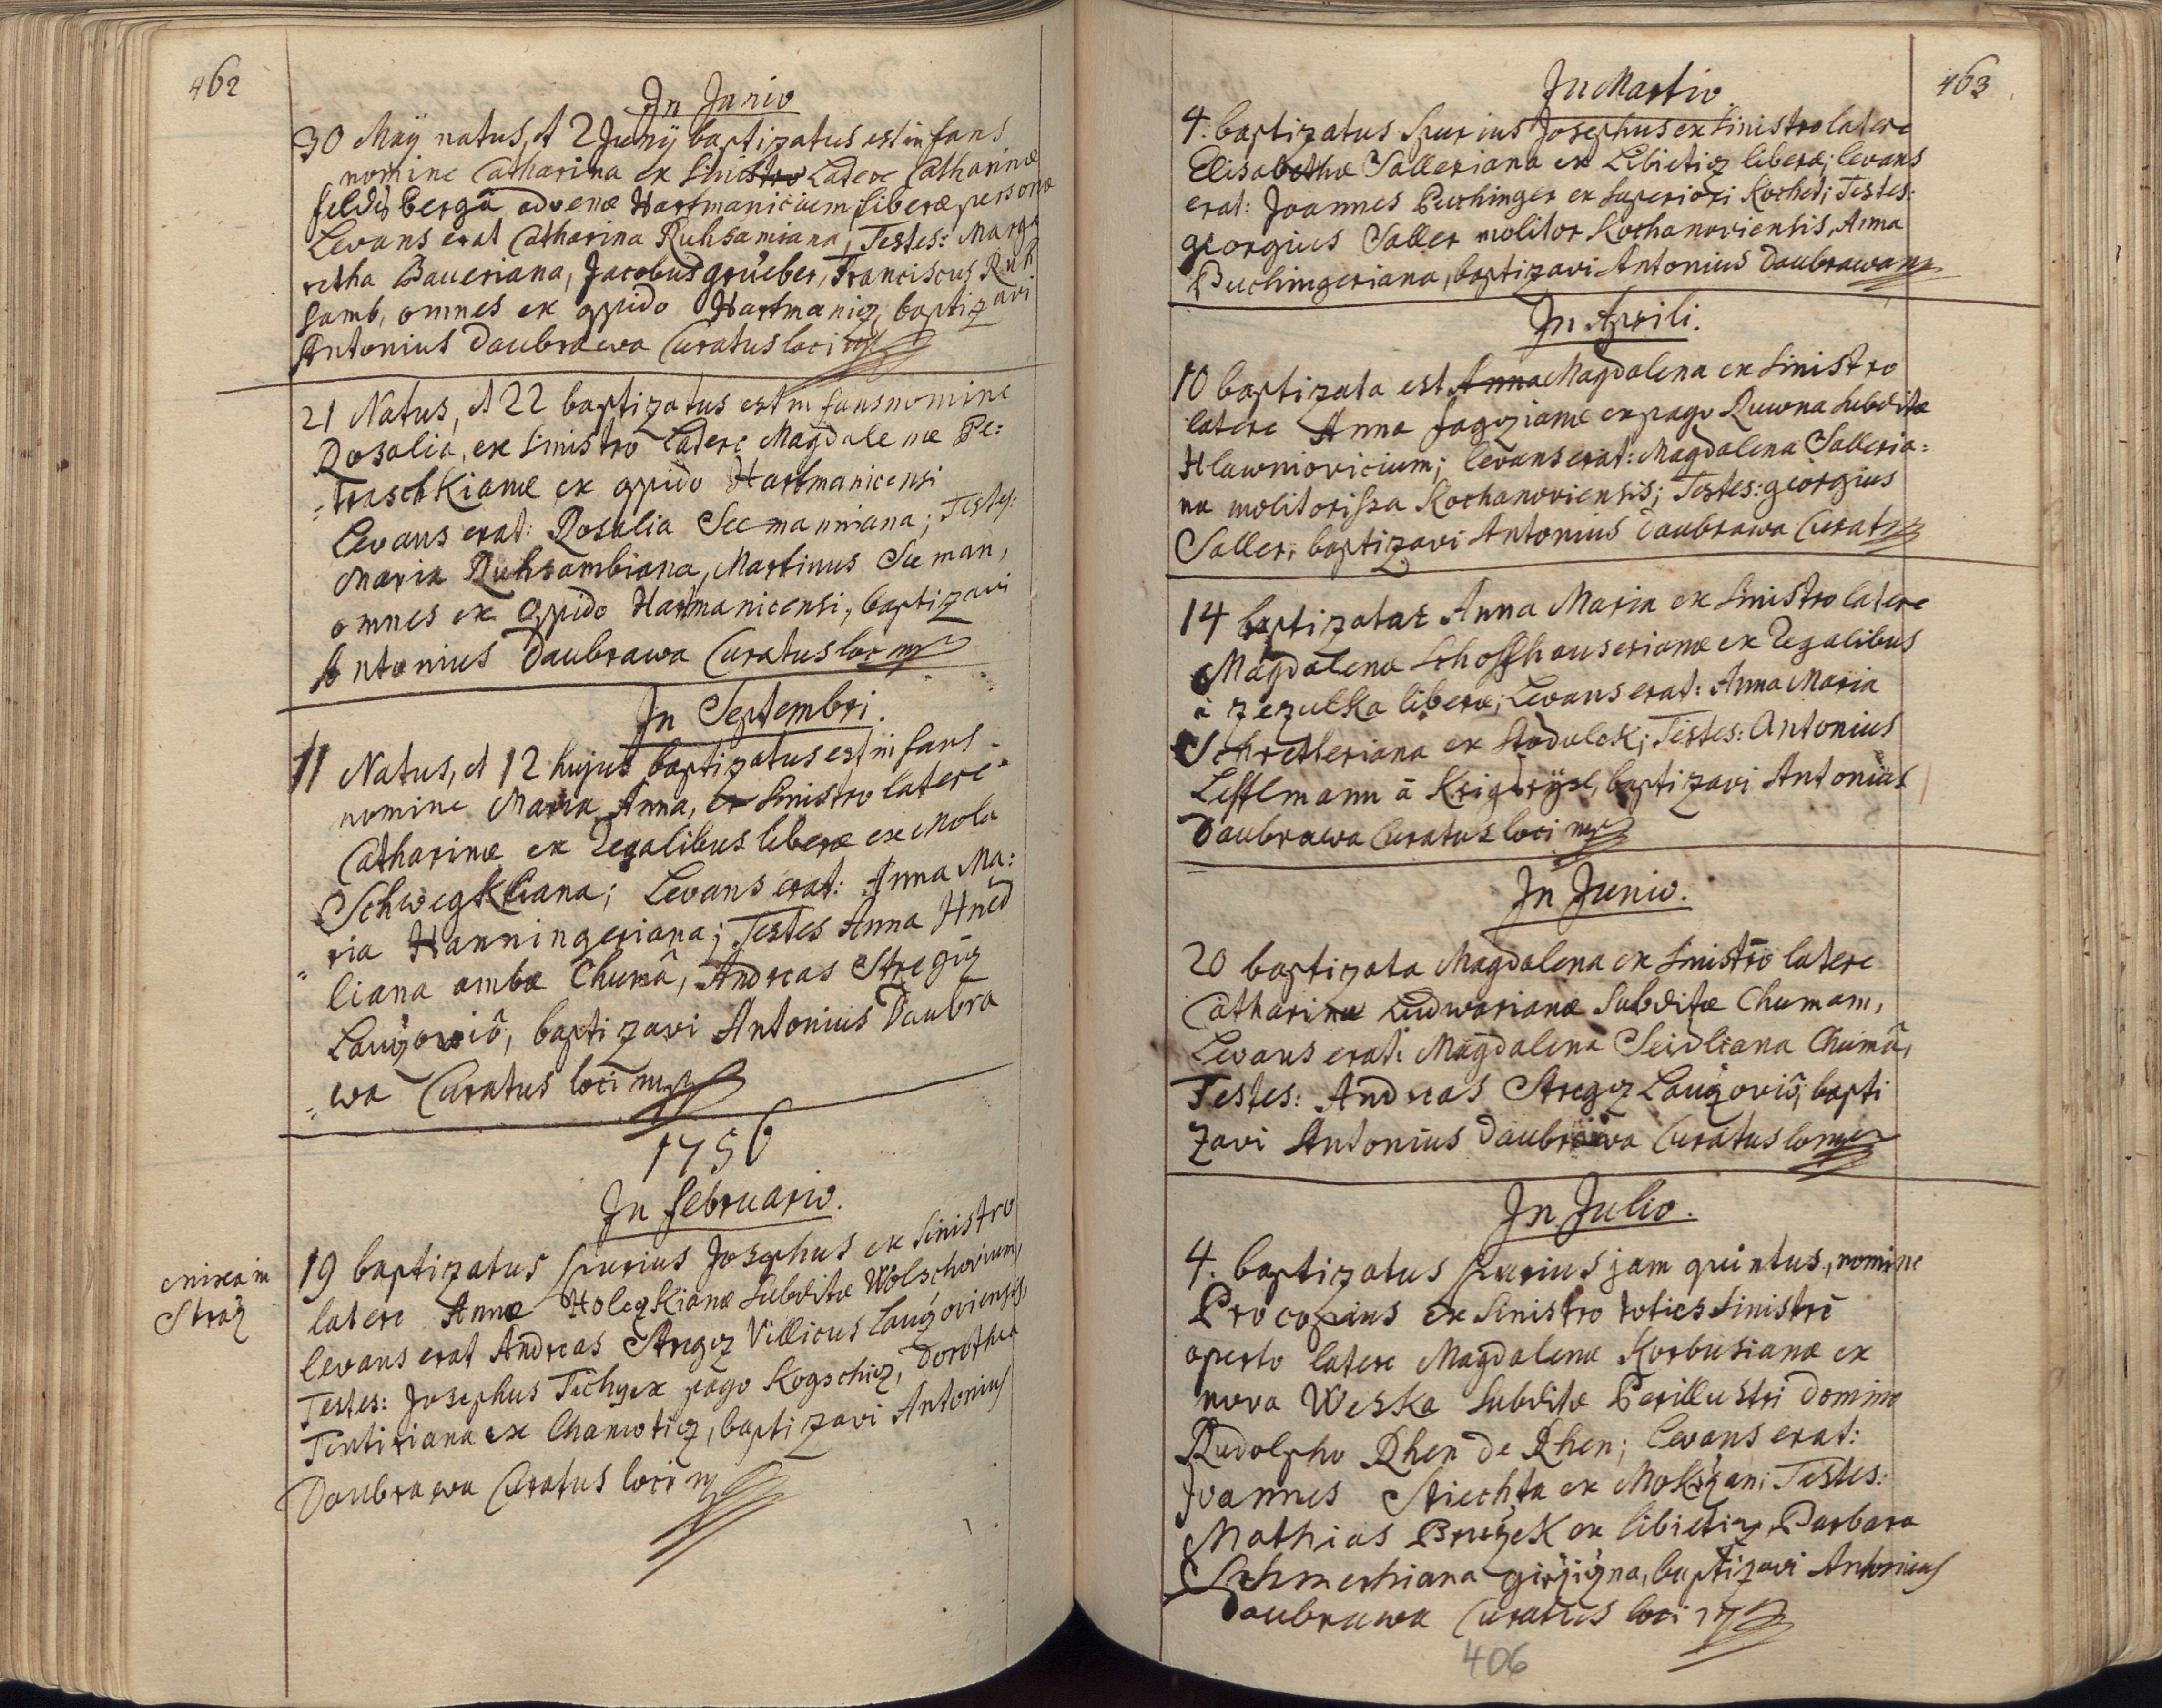 462
In Junio
30 Maÿ natus, et 2 Junÿ baptizatus est infans
nomine Catharina ex Sinistro Latere Catharinæ
feldsbergã advenæ Hartmanicium liberæ personæ
Levans erat Catharina Ruhsamiana, Testes: Marga
retha Baueriana, Jacobus grueber, Franciscus Ruh
samb, omnes ex oppido Hartmaniz, baptizavi
Antonius Daubrawa Curatus loci mp
21 Natus, et 22 baptizatus est infans nomine
Rosalia, ex Sinistro Latere Magdalenæ Pe:
=traschkianæ ex oppido Hartmanicensi
Levans erat: Rosalia Seemanniana; Testes:
Maria Ruhsambiana, Martinus Seeman,
omnes ex oppido Hartmanicensi, baptizavi
Antonius Daubrawa Curatus loci mp
In Septembri.
11 Natus, et 12 hujus baptizatus est infans
nomine Maria Anna, ex Sinistro latere
Catharinæ ex Regalibus liberæ ex Mola
Schwegkliana; Levans erat: Anna Ma:
=ria Hanningeriana; Testes Anna Hned
liana ambæ Chumâ, Andreas Stregiz
Lauzoviô, baptizavi Antonius Daubra
=wa Curatus loci mp
1756
In februario.
enixa in
Straz
19 baptizatus spurius Josephus ex Sinistro
latere Annæ Holeczkianæ Subditæ Wolschovium,
levans erat Andreas Stregz Villicus Lauzoviensis,
Testes: Josephus Tichy ex pago Kogschiz, Dorothea
Tentiriana ex Chamotiz, baptizavi Antonius
Daubrawa Curatus loci mp
463
In Martio
4. baptizatus Spurius Josephus ex Sinistro latere
Elisabethæ Salleriana ex Libietiz liberæ; levans
erat: Joannes Puchinger ex Superiori Kochet; Testes:
georgius Saller molitor Kochanoviensis, Anna
Puchingeriana, baptizavi Antonius Daubrawa mp
In Aprili.
10 baptizata est Anna Magdalena ex Sinistro
latere Anna fagziame ex pago Ruwna Subditæ
Hlawniovicium; levans erat: Magdalena Salleria=
na molitorissa Kochanoviensis; Testes: georgius
Saller, baptizavi Antonius Daubrawa Curat mp
14 baptizatae Anna Maria ex Sinistro latere
Magdalenæ Schoffhauserianæ ex Regalibus
à Zezulka liberæ; Levans erat: Anna Maria
Schretteriana ex Stodulek; Testes: Antonius
Lefflmann à Krigdrÿsl, baptizavi Antonius
Daubrawa Curatus loci mp
In Junio.
20 baptizata Magdalena ex Sinistro latere
Catharinæ Ludwarianæ Subditæ Chumam,
Levans erat: Magdalena Seidliana Chumâ,
Testes: Andreas Stregz Lauzoviô, bapti
zavi Antonius Daubrawa Curatus loci mp
In Julio.
4. baptizatus spurius jam quintus, nomine
Procopius ex Sinistro toties Sinistrè
aperto latere Magdalenæ Korbusianæ ex
nova Weska Subditæ Perillustri Domino
Rudolpho Rhen de Rhen; levans erat:
Joannes Striechta ex Mokrzan; Testes:
Mathias Bruzek ex libietiz, Barbara
Schmechiana girzizna, baptizavi Antonius
Daubrawa Curatus loci mp
406